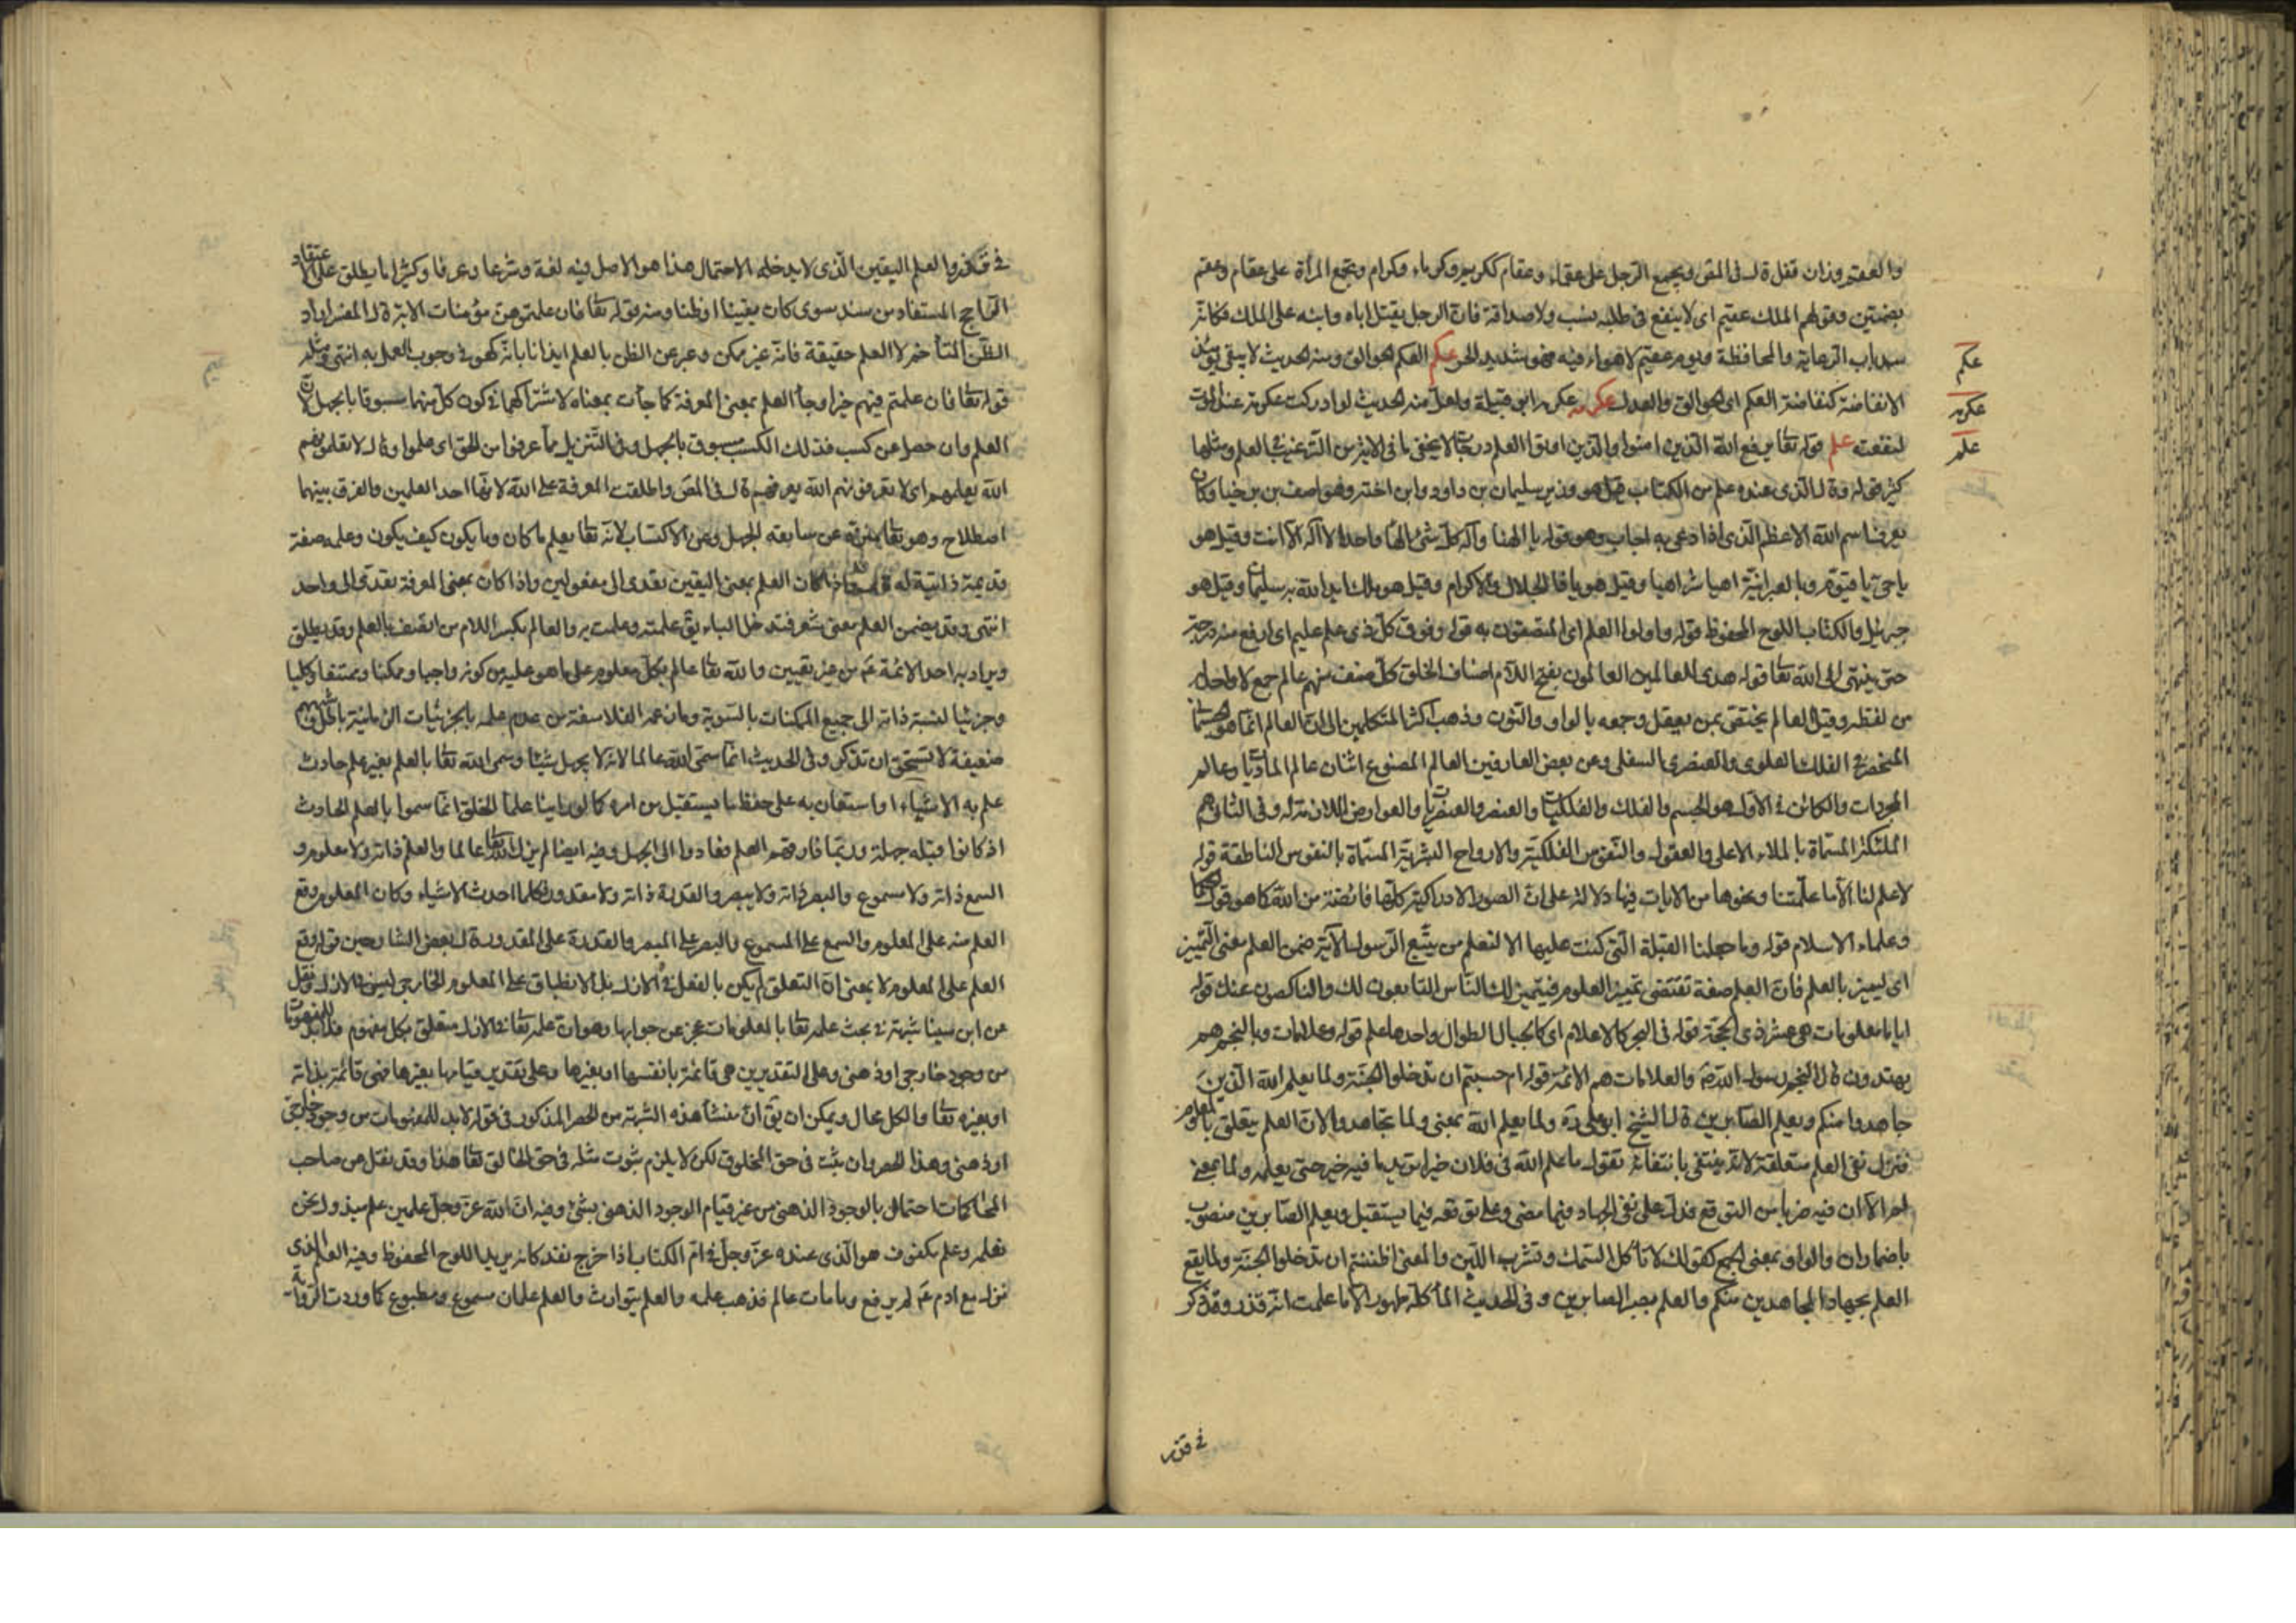 والعقم وزان قفل قال فى المص ويجمع الرجل على عقماء وعقام ككريم وكرماء وكرام وتجمع المرأة على عقام وعقم
بضمتين وقولهم الملك عقيم اى لا ينفع فى طلبه نسب ولا صداقة فان الرجل يقتل اباه وابنه على الملك فكانه
سد باب الرعاية والمحافظة ويوم عقيم لا هواء فيه فهو شديد الحر عكم العكم الجوالق ومنه الحديث لا يبقى
الانفاضة كنفاضة العكم اى الجوالق والعدل عكرمه عكرمه ابى قبيلة ولعل منه الحديث لو ادركت عكرمة عند الموت
لنفعته علم قوله تعا يرفع الله الذين امنوا والذين اوتوا العلم درجات لا يخفى ما فى الاية من الترغيب فى العلم ومثلها
كثير قوله قال الذى عنده علم من الكتاب قيل هو وزير سليمان بن داود وابن اخته وهو اصف بن برخيا وكان
يعرف اسم الله الاعظم الذى اذا دعى به اجاب وهو قوله يا الهنا واله كل شئ الها واحدا لا اله الا انت وقيل هو
يا حى يا قيوم وبالعبرانية اهيا شراهيا وقيل هو يا ذا الجلال والاكرام وقيل هو ملك ايد الله به سليمان وقيل هو
جبرئيل والكتاب اللوح المحفوظ قوله واولوا العلم اى المتصفون به قوله وفوق كل ذى علم عليم اى ارفع منه درجة
حتى ينتهى الى الله تعا قوله هدى للعالمين العالمون بفتح اللام اصناف الخلق كل صنف منهم عالم جمع لا واحد له
من لفظه وقيل العالم يختص بمن يعقل وجمعه بالواو والنون وذهب اكثر المتكلمين الى ان العالم انما هو
المنحصر فى الفلك العلوى والعنصرى السفلى وعن بعض العارفين العالم المصنوع اثنان عالم الماديات وعالم
المجردات والكائن فى الاول هو الجسم والفلك والفلكيات والعنصر والعنصريات والعوارض اللازمة له وفى الثانى هم
الملئكة المسماة بالملاء الاعلى والعقول والنفوس الفلكية والارواح البشرية المسماة بالنفوس الناطقة قوله
لا علم لنا الا ما علمتنا ونحوها من الايات فيها دلالة على ان الصور الادراكية كلها فائضة من الله كما هو قول الحكما
وعلماء الاسلام قوله وما جعلنا القبلة التى كنت عليها الا لنعلم من يتبع الرسول الآية ضمن العلم معنى التمييز
اى ليميز بالعلم فان العلم صفة تقتضى تمييز المعلوم فيتميز لك الناس التابعون لك والناكصون عنك قوله
ايام معلومات هى عشر ذى الحجة قوله فى البحر كالاعلام اى كالجبال الطوال واحدها علم قوله وعلامات وبالنجم هم
يهتدون قال النجم رسول الله ص والعلامات هم الائمة قوله ام حسبتم ان تدخلوا الجنة ولما يعلم الله الذين
جاهدوا منكم ويعلم الصابرين قال الشيخ ابو على ره ولما يعلم الله بمعنى ولما تجاهدوا لان العلم يتعلق بالمعلوم
فنزل نفى العلم متعلقة لانه ينتفى بانتفائه تقول ما علم الله فى فلان خيرا تريد ما فيه خير حتى يعلمه ولما بمعنى
لم الا ان فيه ضربا من التوقع فدل على نفى الجهاد فيما مضى وعلى توقعه فيما يستقبل ويعلم الصابرين منصوب
باضمار ان والواو بمعنى الجمع كقولك لا تأكل السمك وتشرب اللبن والمعنى اظننتم ان تدخلوا الجنة ولما يقع
العلم بجهاد المجاهدين منكم والعلم بصبر الصابرين وفى الحديث الماء كله طهور الا ما علمت انه قذر وقد ذكر
فى قذر
عكم
عكرمه
علم
فى قذر والعلم اليقين الذى لا يدخله الاحتمال هذا هو الاصل فيه لغة وشرعا وعرفا وكثيرا ما يطلق على الاعتقاد
الراجح المستفاد من سند سوى كان يقينا او ظنا ومنه قوله تعا فان علمتموهن مؤمنات الاية قال المفسر اراد
الظن المتأخم لا العلم حقيقة فانه غير ممكن وعبر عن الظن بالعلم ايذانا بانه كهو فى وجوب العمل به انتهى ومثله
قوله تعا فان علمتم فيهم خيرا وجاء العلم بمعنى المعرفة كما جأت بمعناه لاشتراكهما فى كون كل منهما مسبوقا بالجهل لان
العلم وان حصل عن كسب فذلك الكسب مسبوق بالجهل وفى التنزيل مما عرفوا من الحق اى علموا وقال لا تعلمونهم
الله يعلمهم اى لا تعرفونهم الله يعرفهم قال فى المص واطلقت المعرفة على الله لانها احد العلمين والفرق بينهما
اصطلاح وهو تعا منزه عن سابقه الجهل وعن الاكتساب لانه تعا يعلم ما كان وما يكون كيف يكون وعلمه صفة
قديمة ذاتية له قال واذا كان العلم بمعنى اليقين تعدى الى مفعولين واذا كان بمعنى المعرفة تعدى الى واحد
انتهى وقد يضمن العلم معنى شعر فتدخل الباء يق علمته وعلمت به والعالم بكسر اللام من اتصف بالعلم وقد يطلق
ويراد به احد الائمة ع من غير تعيين والله تعا عالم بكل معلوم على ما هو عليه من كونه واجبا وممكنا وممتنعا وكليا
وجزئيا لنسبة ذاته الى جميع الممكنات بالسوية وما زعمه الفلاسفة من عدم علمه بالجزئيات الزمانية باطل
ضعيفة لا تستحق ان تذكر وفى الحديث انما سمى الله عالما لانه لا يجهل شيئا وسمى الله تعا بالعلم بغير علم حادث
علم به الاشياء او استعان به على حفظ ما يستقبل من امره كما لو راينا علماء الخلق انما سموا بالعلم الحادث
اذ كانوا قبله جهلة وربما فارقهم العلم فعادوا الى الجهل وفيه ايضا لم يزل الله تعا عالما والعلم ذاته ولا معلوم و
السمع ذاته ولا مسموع والبصر ذاته ولا مبصر والقدرة ذاته ولا مقدور فلما احدث الاشياء وكان المعلوم وقع
العلم منه على المعلوم والسمع على المسموع والبصر على المبصر والقدرة على المقدور قال بعض الشارحين قوله وقع
العلم على المعلوم لا بمعنى ان التعلق لم يكن بالفعل فى الازل بل الانطباق على المعلوم الخارجى ليس فى الازل ونقل
عن ابن سينا شبهة فى بحث علمه تعا بالمعلومات عجز عن جوابها وهو ان علمه تعا فى الازل متعلق بكل مفهوم فلابد للمفهومات
من وجود خارجى او ذهنى وعلى التقديرين هى قائمة بانفسها او بغيرها وعلى تقدير قيامها بغيرها فهى قائمة بذاته
او بغيره تعا والكل محال ويمكن ان يق ان منشأ هذه الشبهة من الحصر المذكور فى قوله لابد للمفهومات من وجود خارجى
او ذهنى وهذا الحصر وان ثبت فى حق المخلوق لكن لا يلزم ثبوت مثله فى حق الخالق تعا هذا وقد نقل عن صاحب
المحاكمات احتمال بالوجود الذهنى من غير قيام الوجود الذهنى بشئ وفيه ان الله عز وجل علمين علم مبذول نحن
نعلمه وعلم مكفوف هو الذى عنده عز وجل فى ام الكتاب اذا خرج نفذ كانه يريد اللوح المحفوظ وفيه العلم الذى
نزل مع ادم ع لم يرفع وما مات عالم فذهب علمه والعلم يتوارث والعلم علمان مسموع ومطبوع كما وردت الرواية